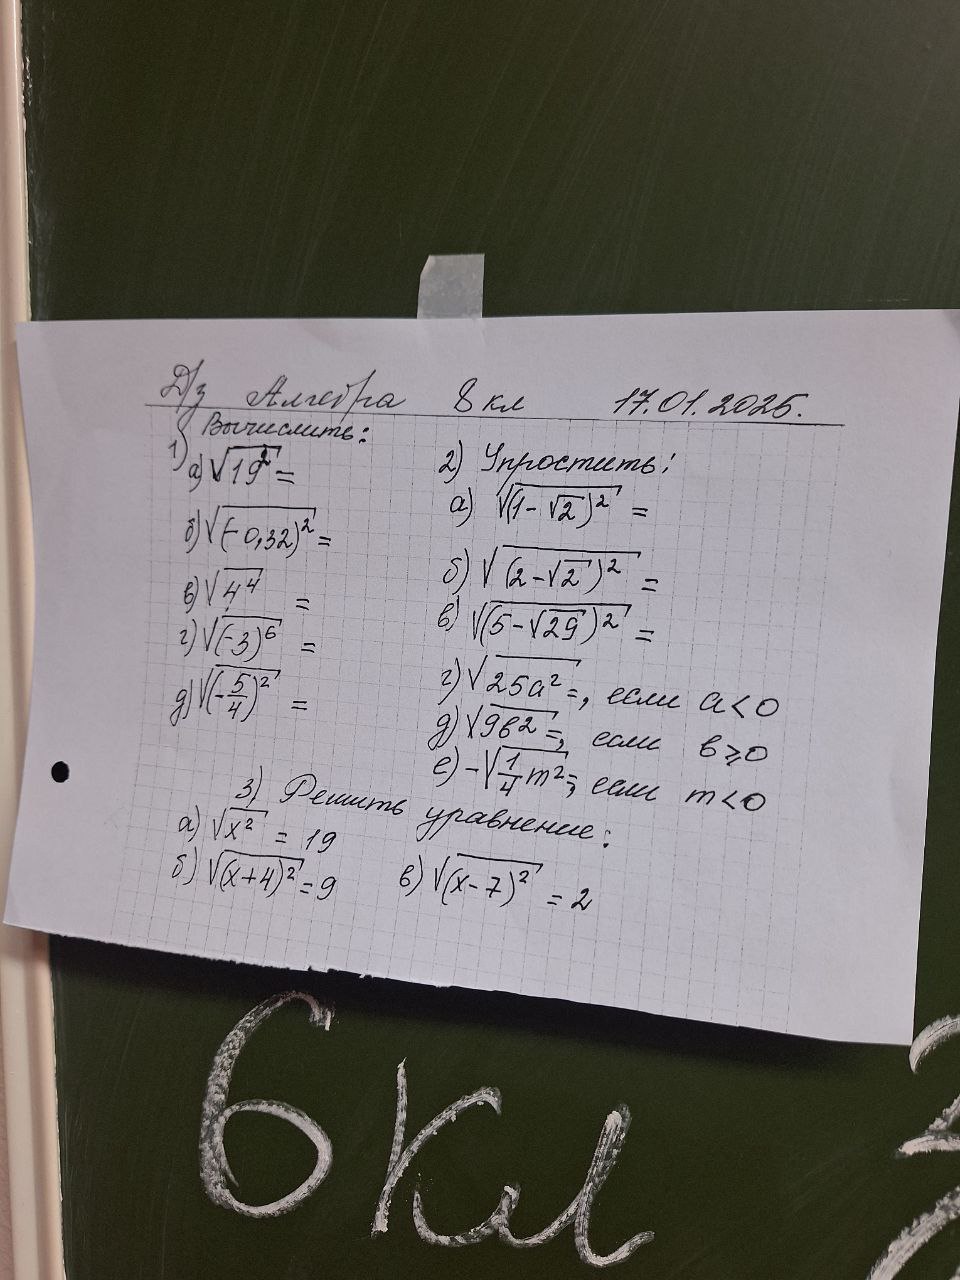 Д/з Алгебра 8 кл 17.01.2025.
1) Вычислить:
а) √19² =
б) √(-0,32)² =
в) √4⁴ =
г) √(-3)⁶ =
д) √(-5/4)² =
2) Упростить:
а) √(1-√2)² =
б) √(2-√2)² =
в) √(5-√29)² =
г) √25a² =, если a<0
д) √9в² =, если в≥0
е) -√1/4 m² =, если m<0
3) Решить уравнение:
а) √x² = 19
б) √(x+4)² = 9 в) √(x-7)² = 2
6 кл